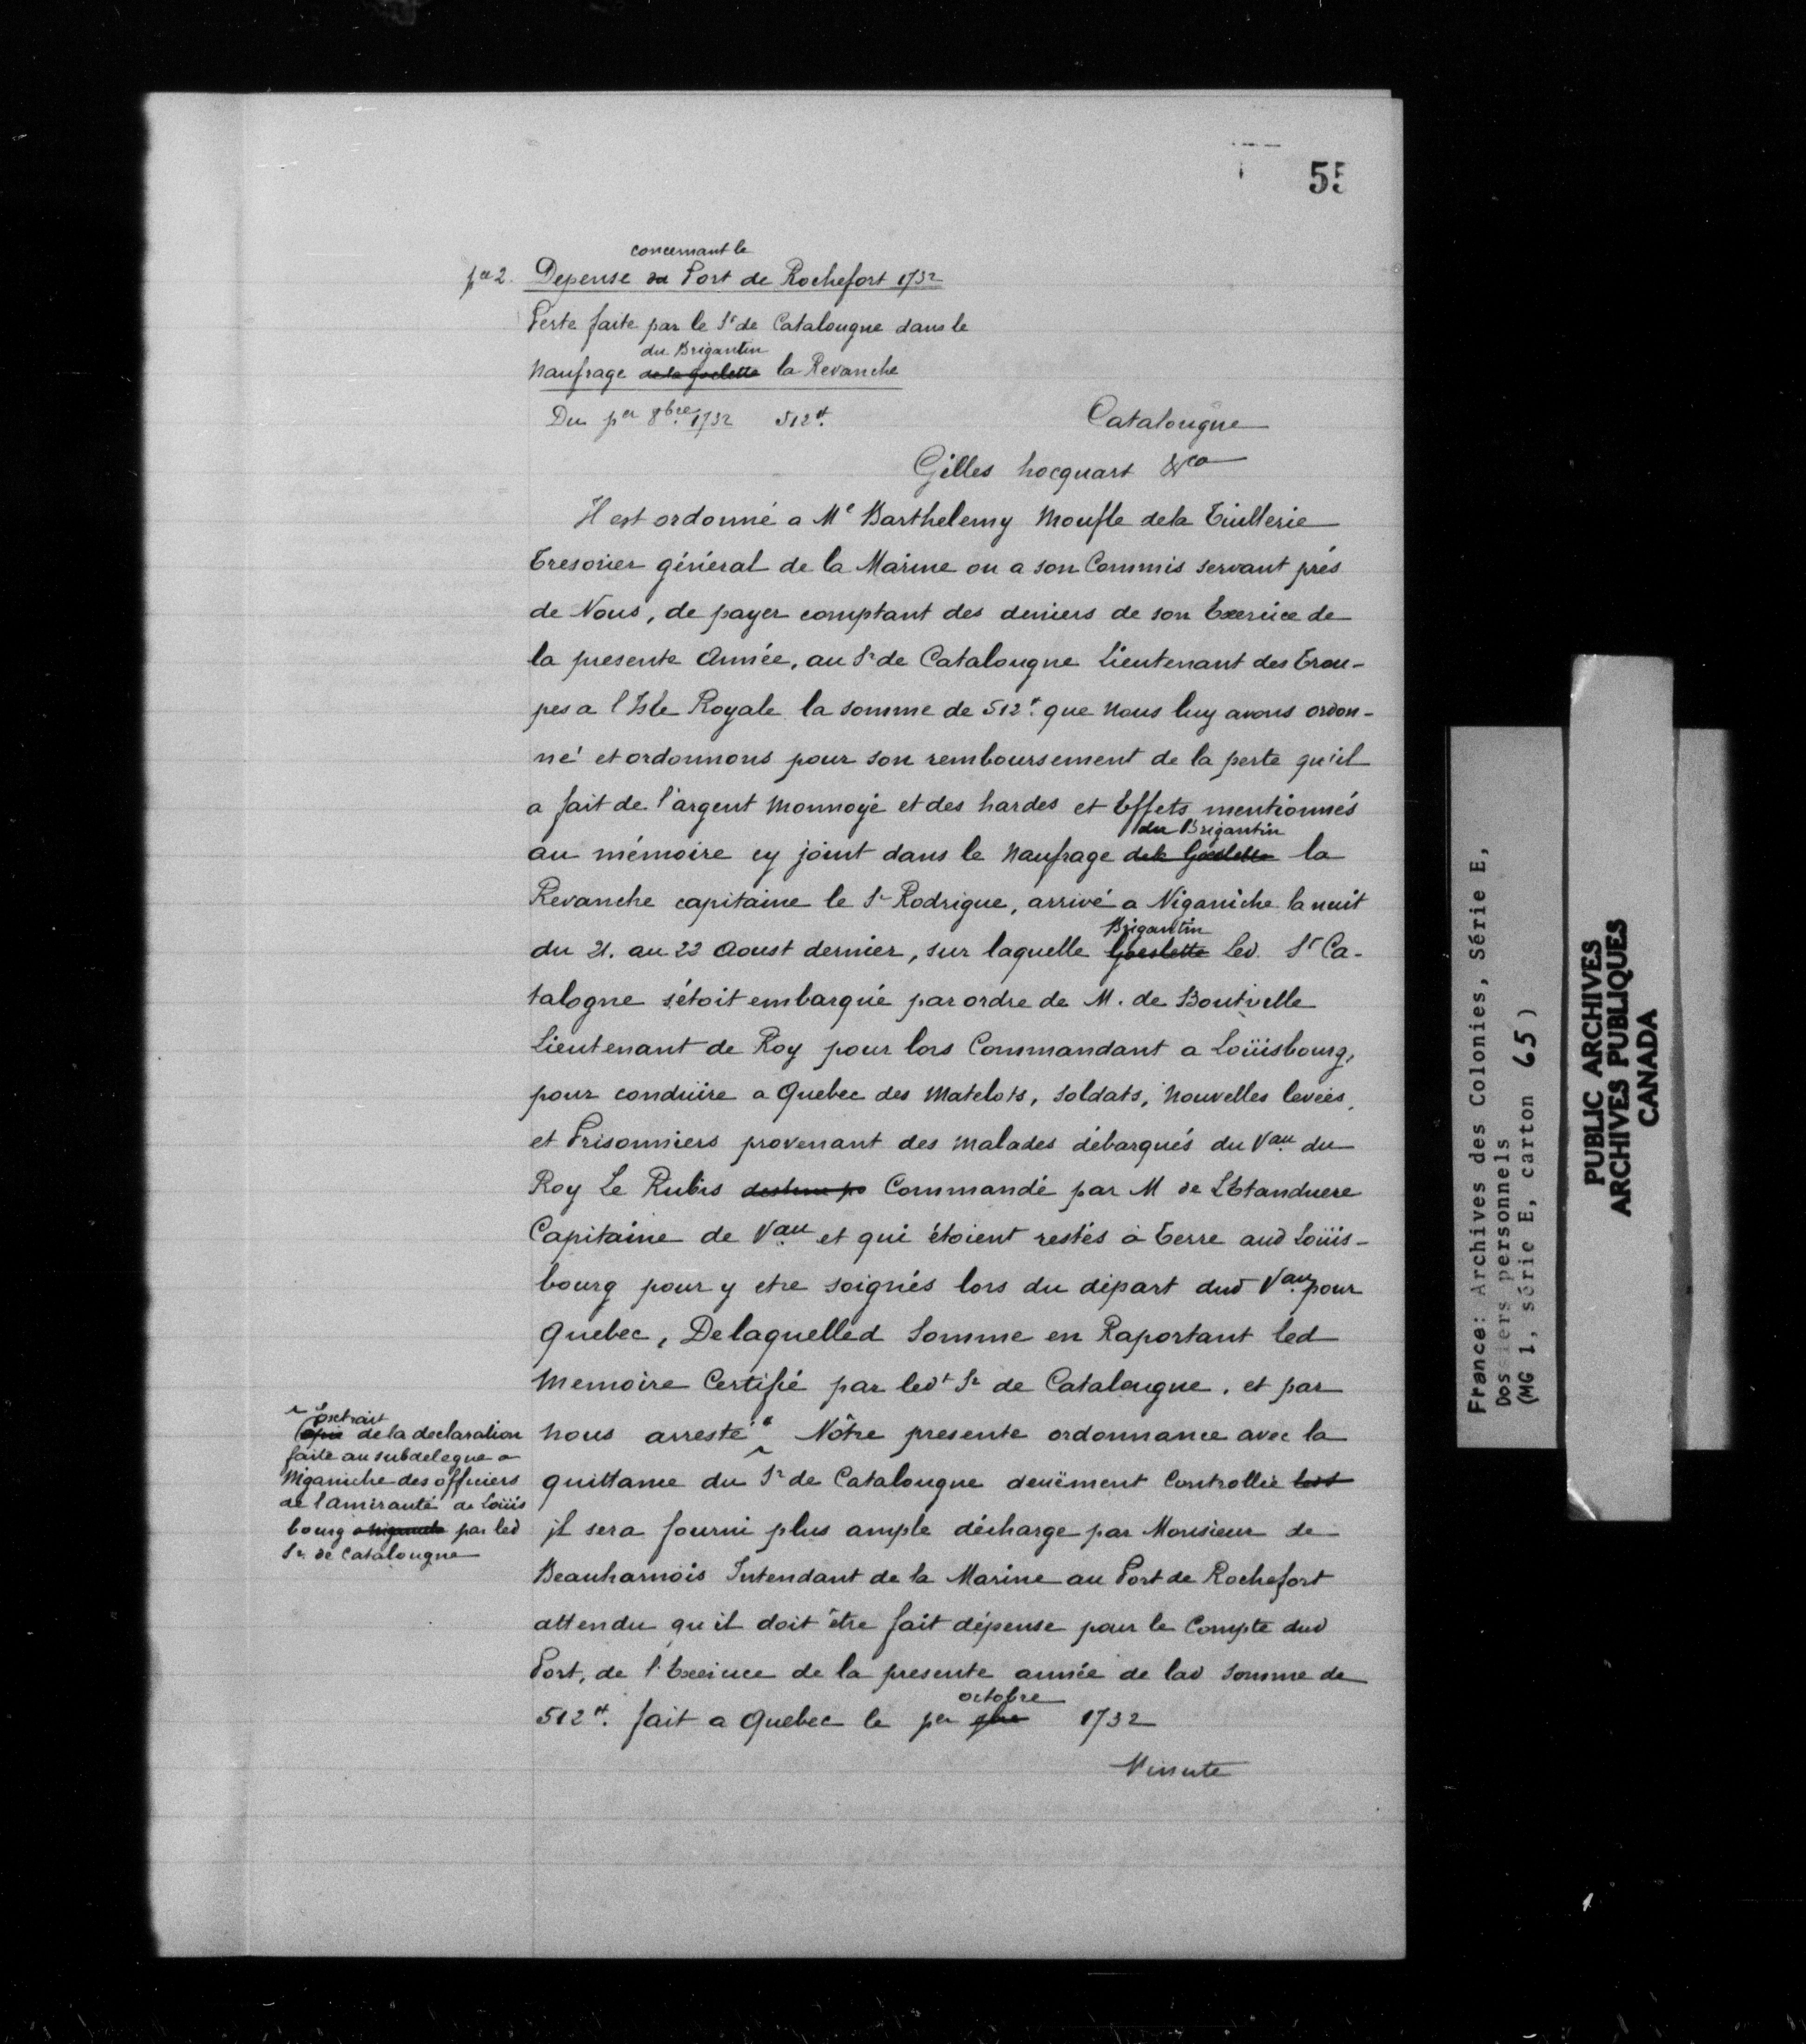 55
concernant le
pce 2. Depense du Port de Rochefort 1732
Perte faite par le Sr de Catalougne dans le
du Brigantin
Naufrage de la goelette la Revanche
Du per 8bre 1732 512tt.
Catalougne
Gilles hocquart &ca
Il est ordonné a Me Barthelemy Moufle dela Tuillerie
Tresorier général de la Marine ou a son Commis servant prés
de Nous, de payer comptant des deniers de son Exercice de
la presente Année, au Sr de Catalougne Lieutenant des Trou-
pes a l'Isle Royale la somme de 512tt. que Nous luy avons ordon-
né et ordonnons pour son remboursement de la perte qu'il
a fait de l'argent Monnoyé et des hardes et Effets mentionnés
du Brigantin
au mémoire cy joint dans le Naufrage dela Goelette la
Revanche capitaine le Sr Rodrigue, arrivé a Niganiche la nuit
Brigantin
du 21. au 22 Aoust dernier, sur laquelle Goeslette led. Sr Ca-
talogne s'étoit embarqué par ordre de M. de Bourville
Lieutenant de Roy pour lors Commandant a Loüisbourg,
pour conduire a Quebec des Matelots, Soldats, Nouvelles levées,
et Prisonniers provenant des Malades débarqués du Vau. du
Roy Le Rubis destine po Commandé par M de L'Etanduere
Capitaine de Vau. et qui étoient restés à Terre aud Loüis-
bourg pour y etre soignés lors du départ dud Vau. pour
Quebec, De laquelled Somme en Raportant led
Memoire Certifié par ledt Sr de Catalougne, et par
Nous arresté Nôtre presente ordonnance avec la
quittance du Sr de Catalougne deuëment Controllée
il sera fourni plus ample décharge par Monsieur de
Beauharnois Intendant de la Marine au Port de Rochefort
attendu qu'il doit être fait dépense pour le Compte dud
Port, de l'Exercice de la presente année de lad Somme de
octobre
512tt. fait a Quebec le per 9bre 1732
Minute
L'extrait
Copie de la declaration
faite au subdelegue a
Niganiche des officiers
de l'amirauté de Loüis
bourg par led
Sr. de Catalougne
France: Archives des Colonies, Série E,
Dossiers personnels
(MG 1, série E, carton 65)
PUBLIC ARCHIVES
ARCHIVES PUBLIQUES
CANADA